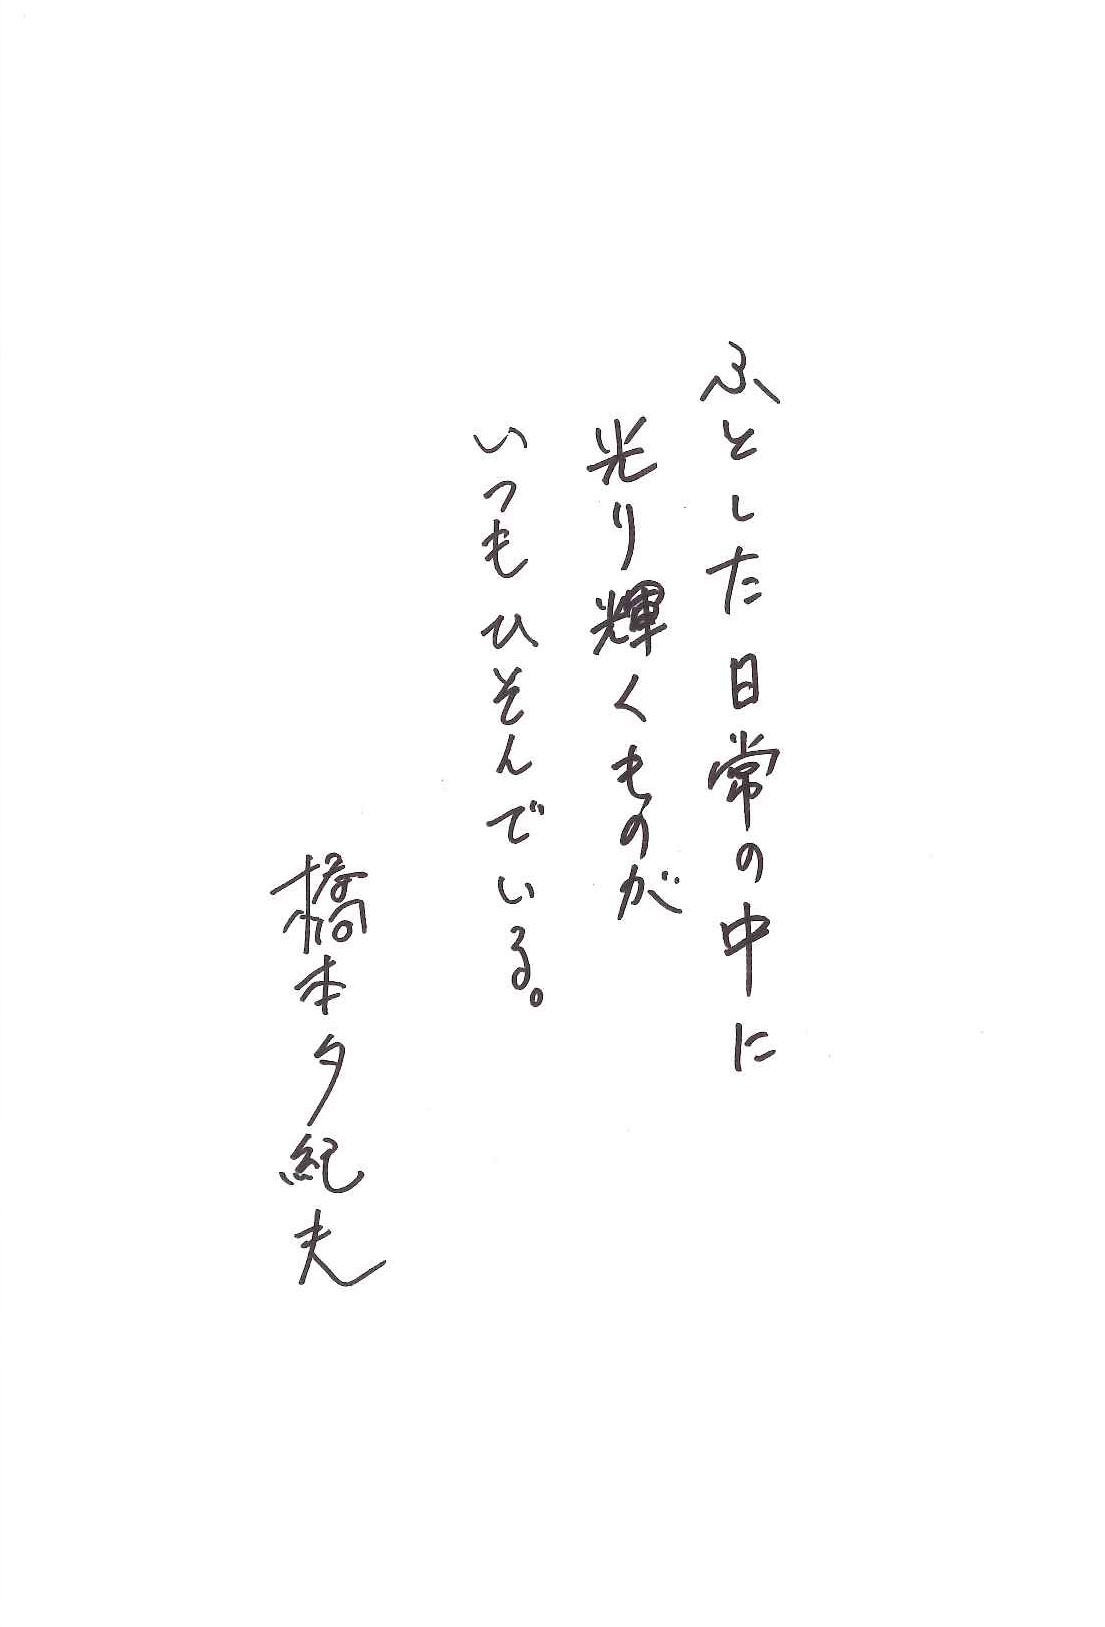 ふとした日常の中に
光り輝くものが
いつもひそんでいる。
橋本夕紀夫